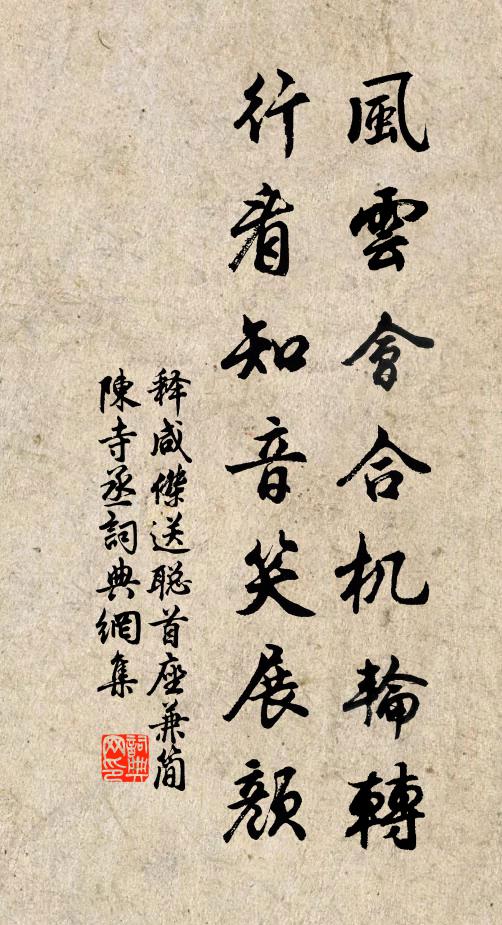 風雲會合机輪轉
行看知音笑展顏
釋咸傑送聰首座兼簡
陳寺丞詞典網集
詞典网印